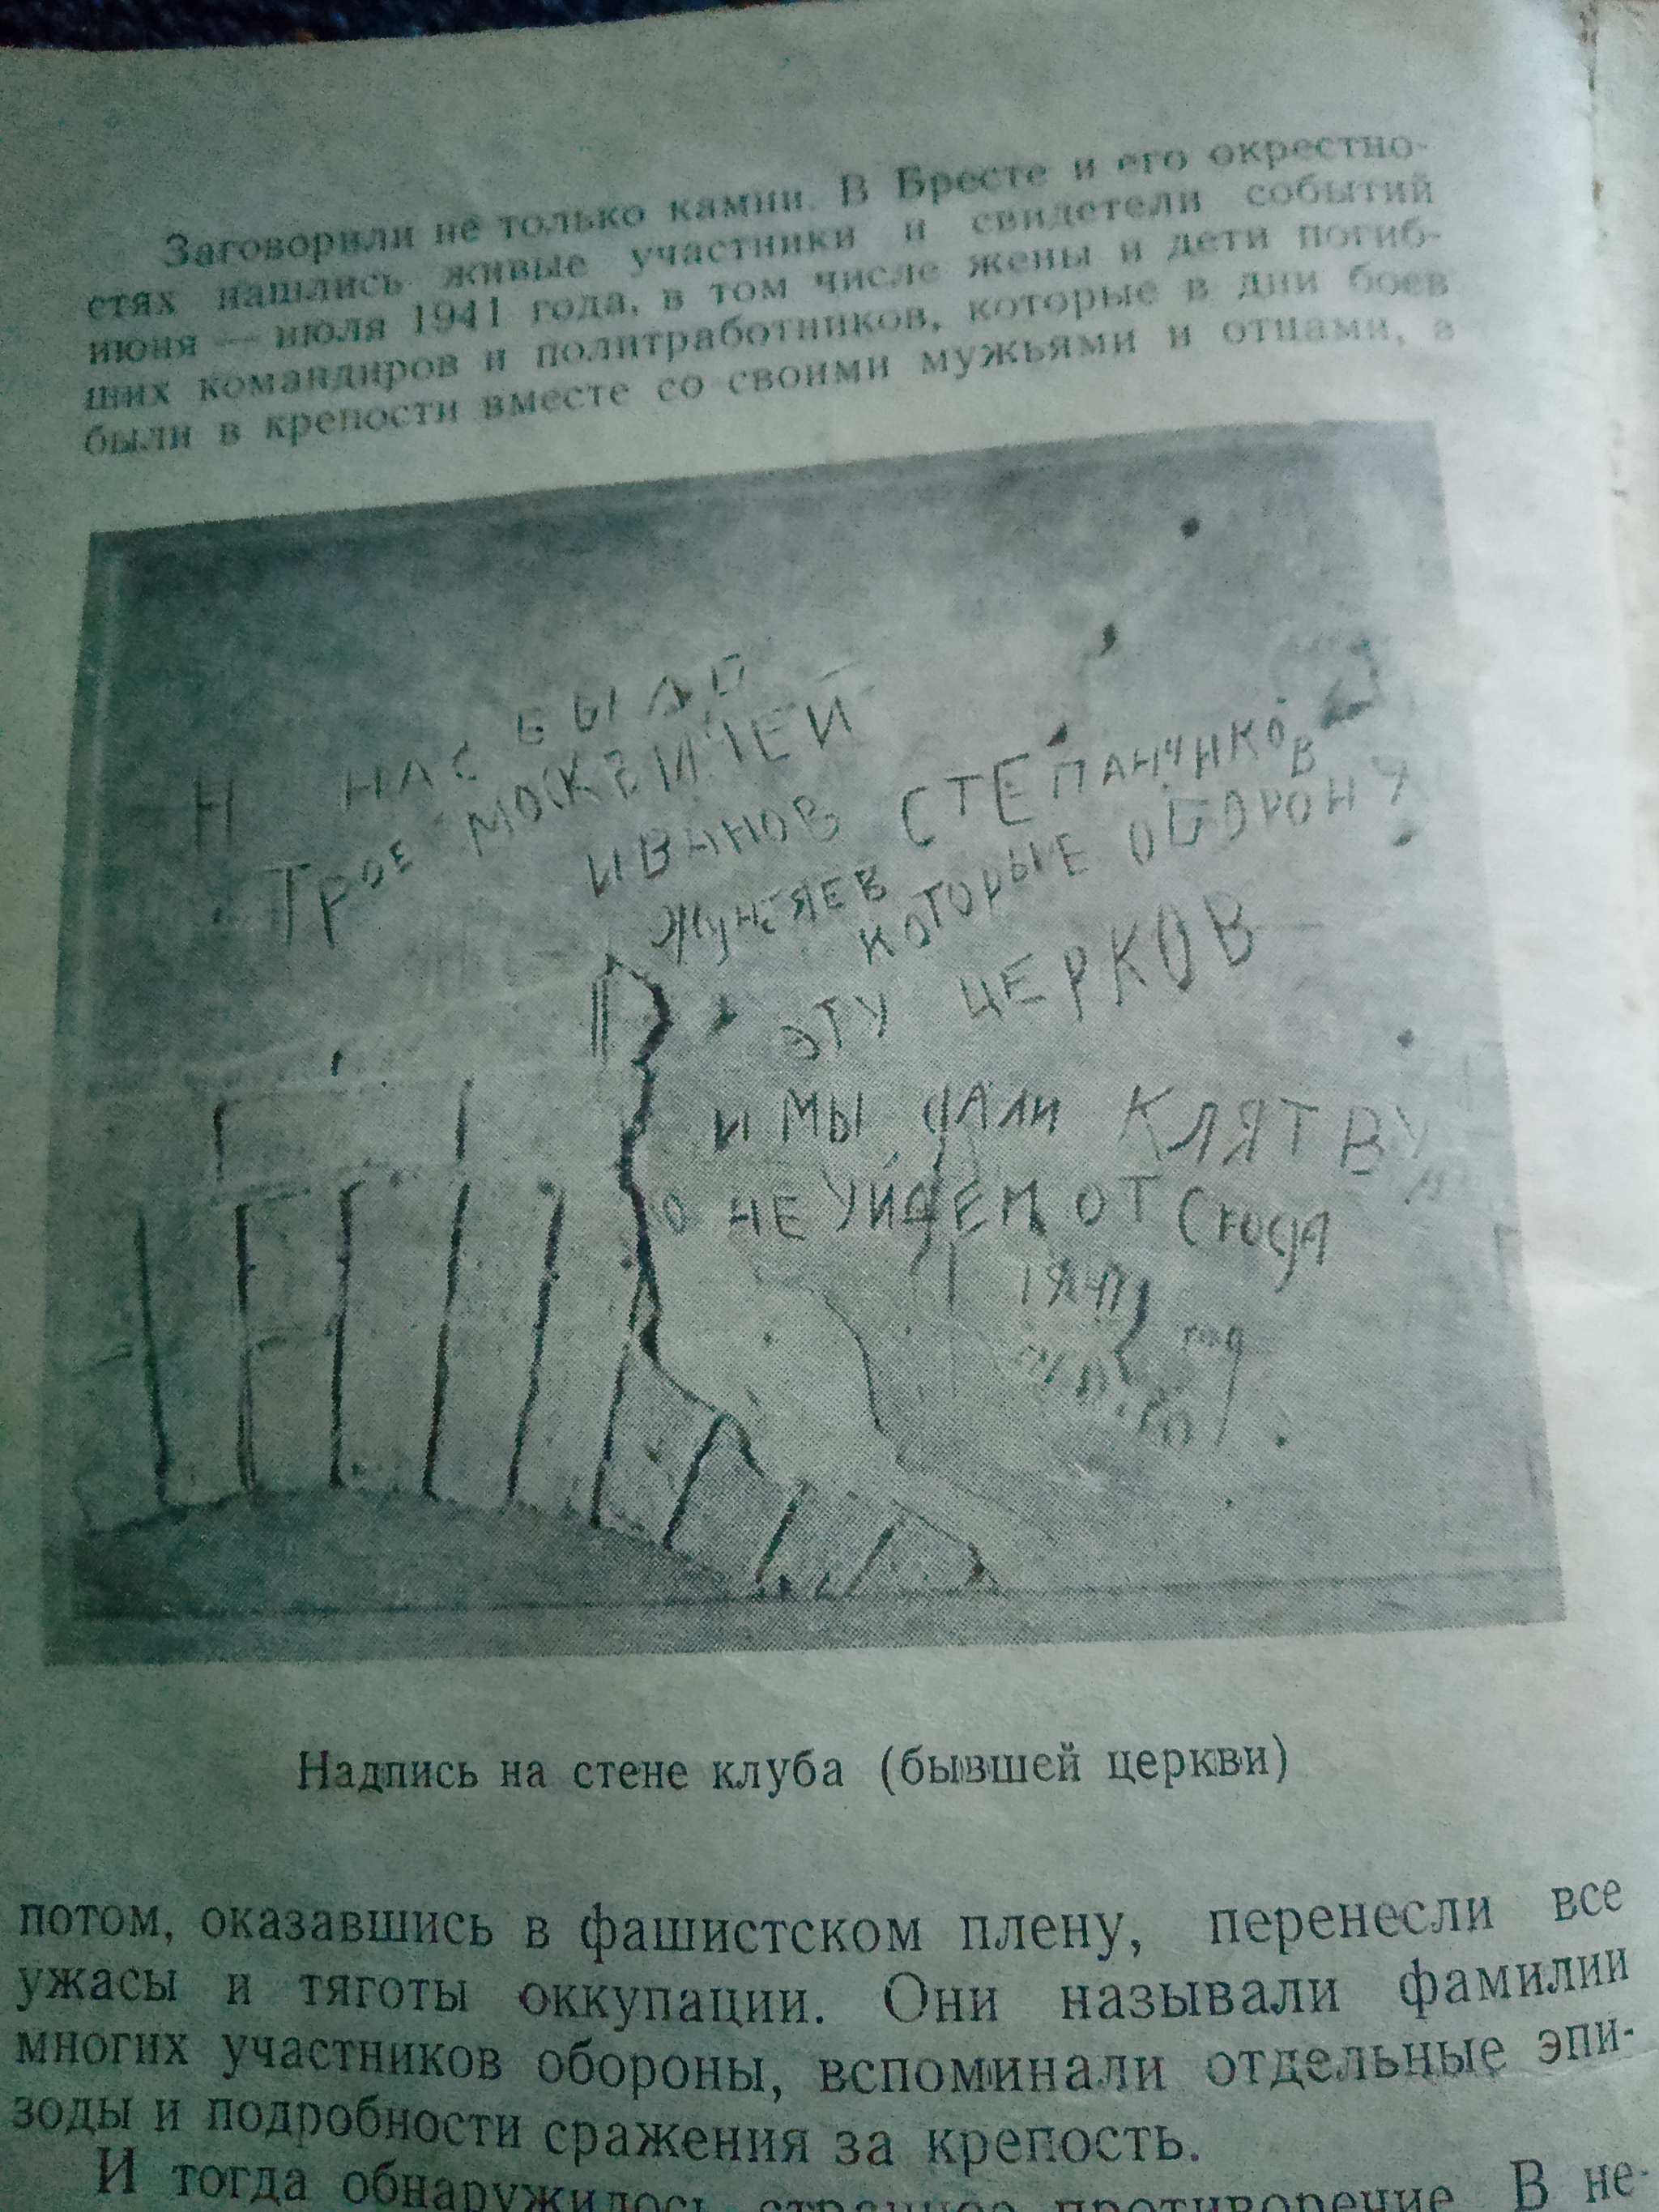 Заговорили не только камни. В Бресте и его окрестно-
стях нашлись живые участники и свидетели событий
июня — июля 1941 года, в том числе жены и дети погиб-
ших командиров и политработников, которые в дни боев
были в крепости вместе со своими мужьями и отцами, а
Н НАС БЫЛО
ТРОЕ МОСКВИЧЕЙ
ИВАНОВ СТЕПАНЧИКОВ
ЖУНТЯЕВ
КОТОРЫЕ ОБОРОНЯ
ЭТУ ЦЕРКОВ
И МЫ ДАЛИ КЛЯТВУ
НЕ УЙДЕМ ОТСЮДА
1941
год
Надпись на стене клуба (бывшей церкви)
потом, оказавшись в фашистском плену, перенесли все
ужасы и тяготы оккупации. Они называли фамилии
многих участников обороны, вспоминали отдельные эпи-
зоды и подробности сражения за крепость.
И тогда обнаружилось странное противоречие. В не-